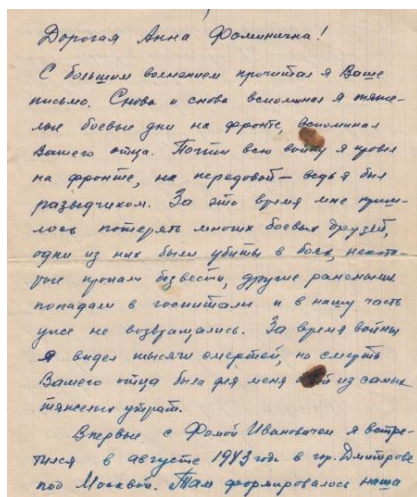 Дорогая Анна Фоминична!
С большим волнением прочитал я Ваше
письмо. Снова и снова вспоминал я тяже-
лые боевые дни на фронте, вспоминал
Вашего отца. Почти всю войну я провел
на фронте, на передовой – ведь я был
разведчиком. За это время мне приш-
лось потерять многих боевых друзей,
одни из них были убиты в боях, некото-
рые пропали безвести, другие ранеными
попадали в госпитали и в нашу часть
уже не возвращались. За время войны
я видел тысячи смертей, но смерть
Вашего отца была для меня из самых
тяжелых утрат.
Впервые с Фомой Ивановичем я встре-
тился в августе 1943 года в гор. Дмитрове
под Москвой. Там формировалось наша